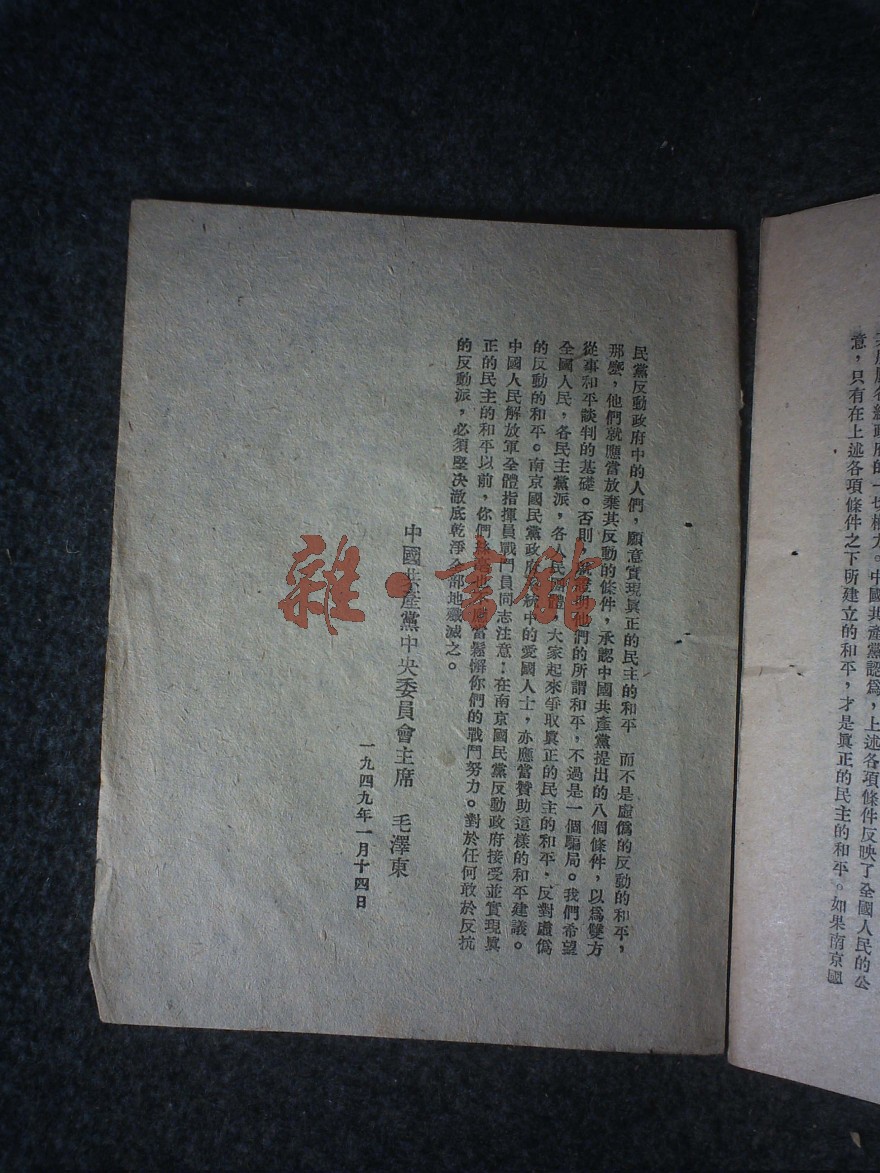 意，只有在上述各項條件之下所建立的和平，才是眞正的民主的和平。如果南京國
民黨反動政府中的人們，願意實現眞正的民主的和平　而不是虛僞的反動的和平，
那麼，他們就應當放棄其反動的條件，承認中國共產黨提出的八個條件，以爲雙方
從事和平談判的基礎。否則，就證明他們的所謂和平，不過是一個騙局。我們希望
全國人民，各民主黨派，各人民團體，大家起來爭取眞正的民主的和平，反對虛僞
的反動的和平。南京國民黨政府系統中的愛國人士，亦應當贊助這樣的和平建議。
中國人民解放軍全體指揮員戰鬥員同志注意：在南京國民黨反動政府接受並實現眞
正的民主的和平以前，你們絲毫也不應當鬆懈你們的戰鬥努力。對於任何敢於反抗
的反動派，必須堅决澈底乾淨全部地殲滅之。
中國共產黨中央委員會主席　毛澤東
一九四九年一月十四日
雜·書館